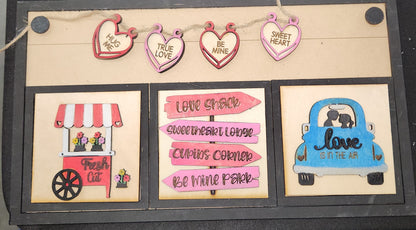 HUGS
ME
TRUE
LOVE
BE
MINE
SWEET
HEART
Fresh
Cut
Love Shack
Sweetheart Lodge
Cupids Corner
Be Mine Park
love
IS IN THE AIR